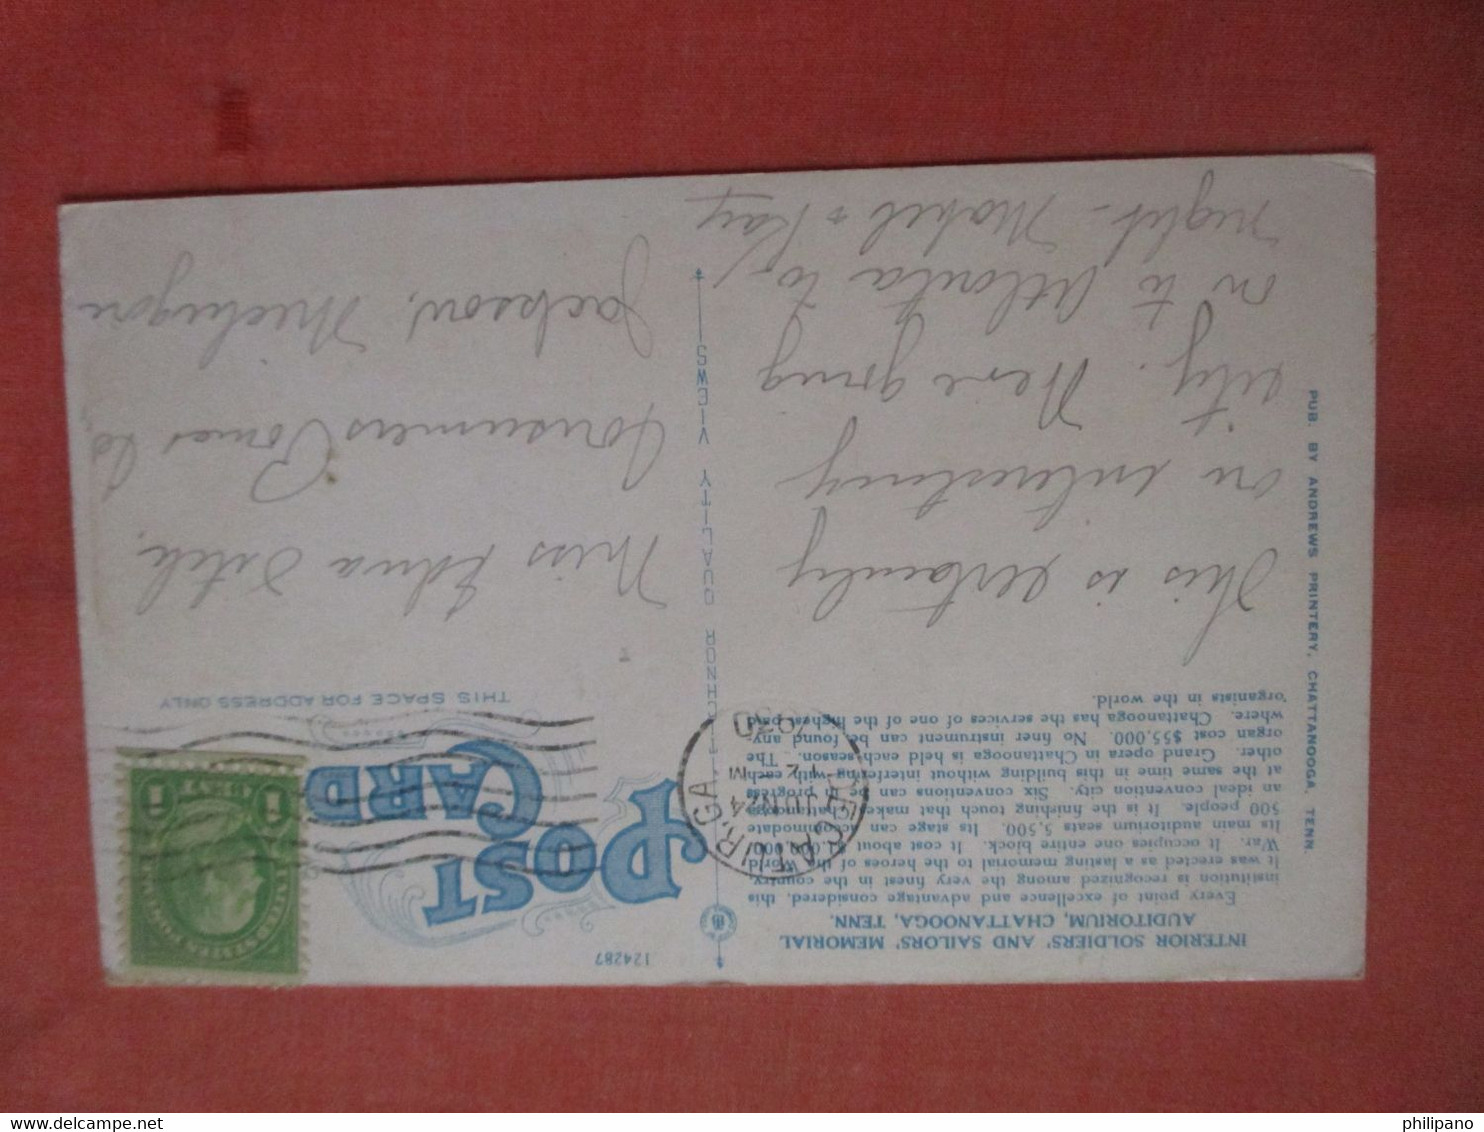 INTERIOR SOLDIERS' AND SAILORS' MEMORIAL
AUDITORIUM, CHATTANOOGA, TENN.
Every point of excellence and advantage considered, this
institution is recognized among the very finest in the country.
It was erected as a lasting memorial to the heroes of the World
War. It occupies one entire block. It cost about
Its main auditorium seats 5,500. Its stage can accommodate
500 people. It is the finishing touch that makes Chattanooga
an ideal convention city. Six conventions can be in progress
at the same time in this building without interfering with each
other. Grand opera is held in Chattanooga each season. The
organ cost $55,000. No finer instrument can be found any-
where. Chattanooga has the services of one of the highest paid
organists in the world.
This is certainly
an interesting
city. Here going
on to Atlanta to-
night - Mabel & Kay
PUB. BY ANDREWS PRINTERY, CHATTANOOGA, TENN.
C.T. AMERICAN ART
TEICHNOR QUALITY VIEWS
124287
POST
CARD
THIS SPACE FOR ADDRESS ONLY
JUN 24
12 M
1930
GA.
UNITED STATES POSTAGE
1 CENT 1
Miss Edna
Consumers Power Co,
Jackson, Michigan
philipano